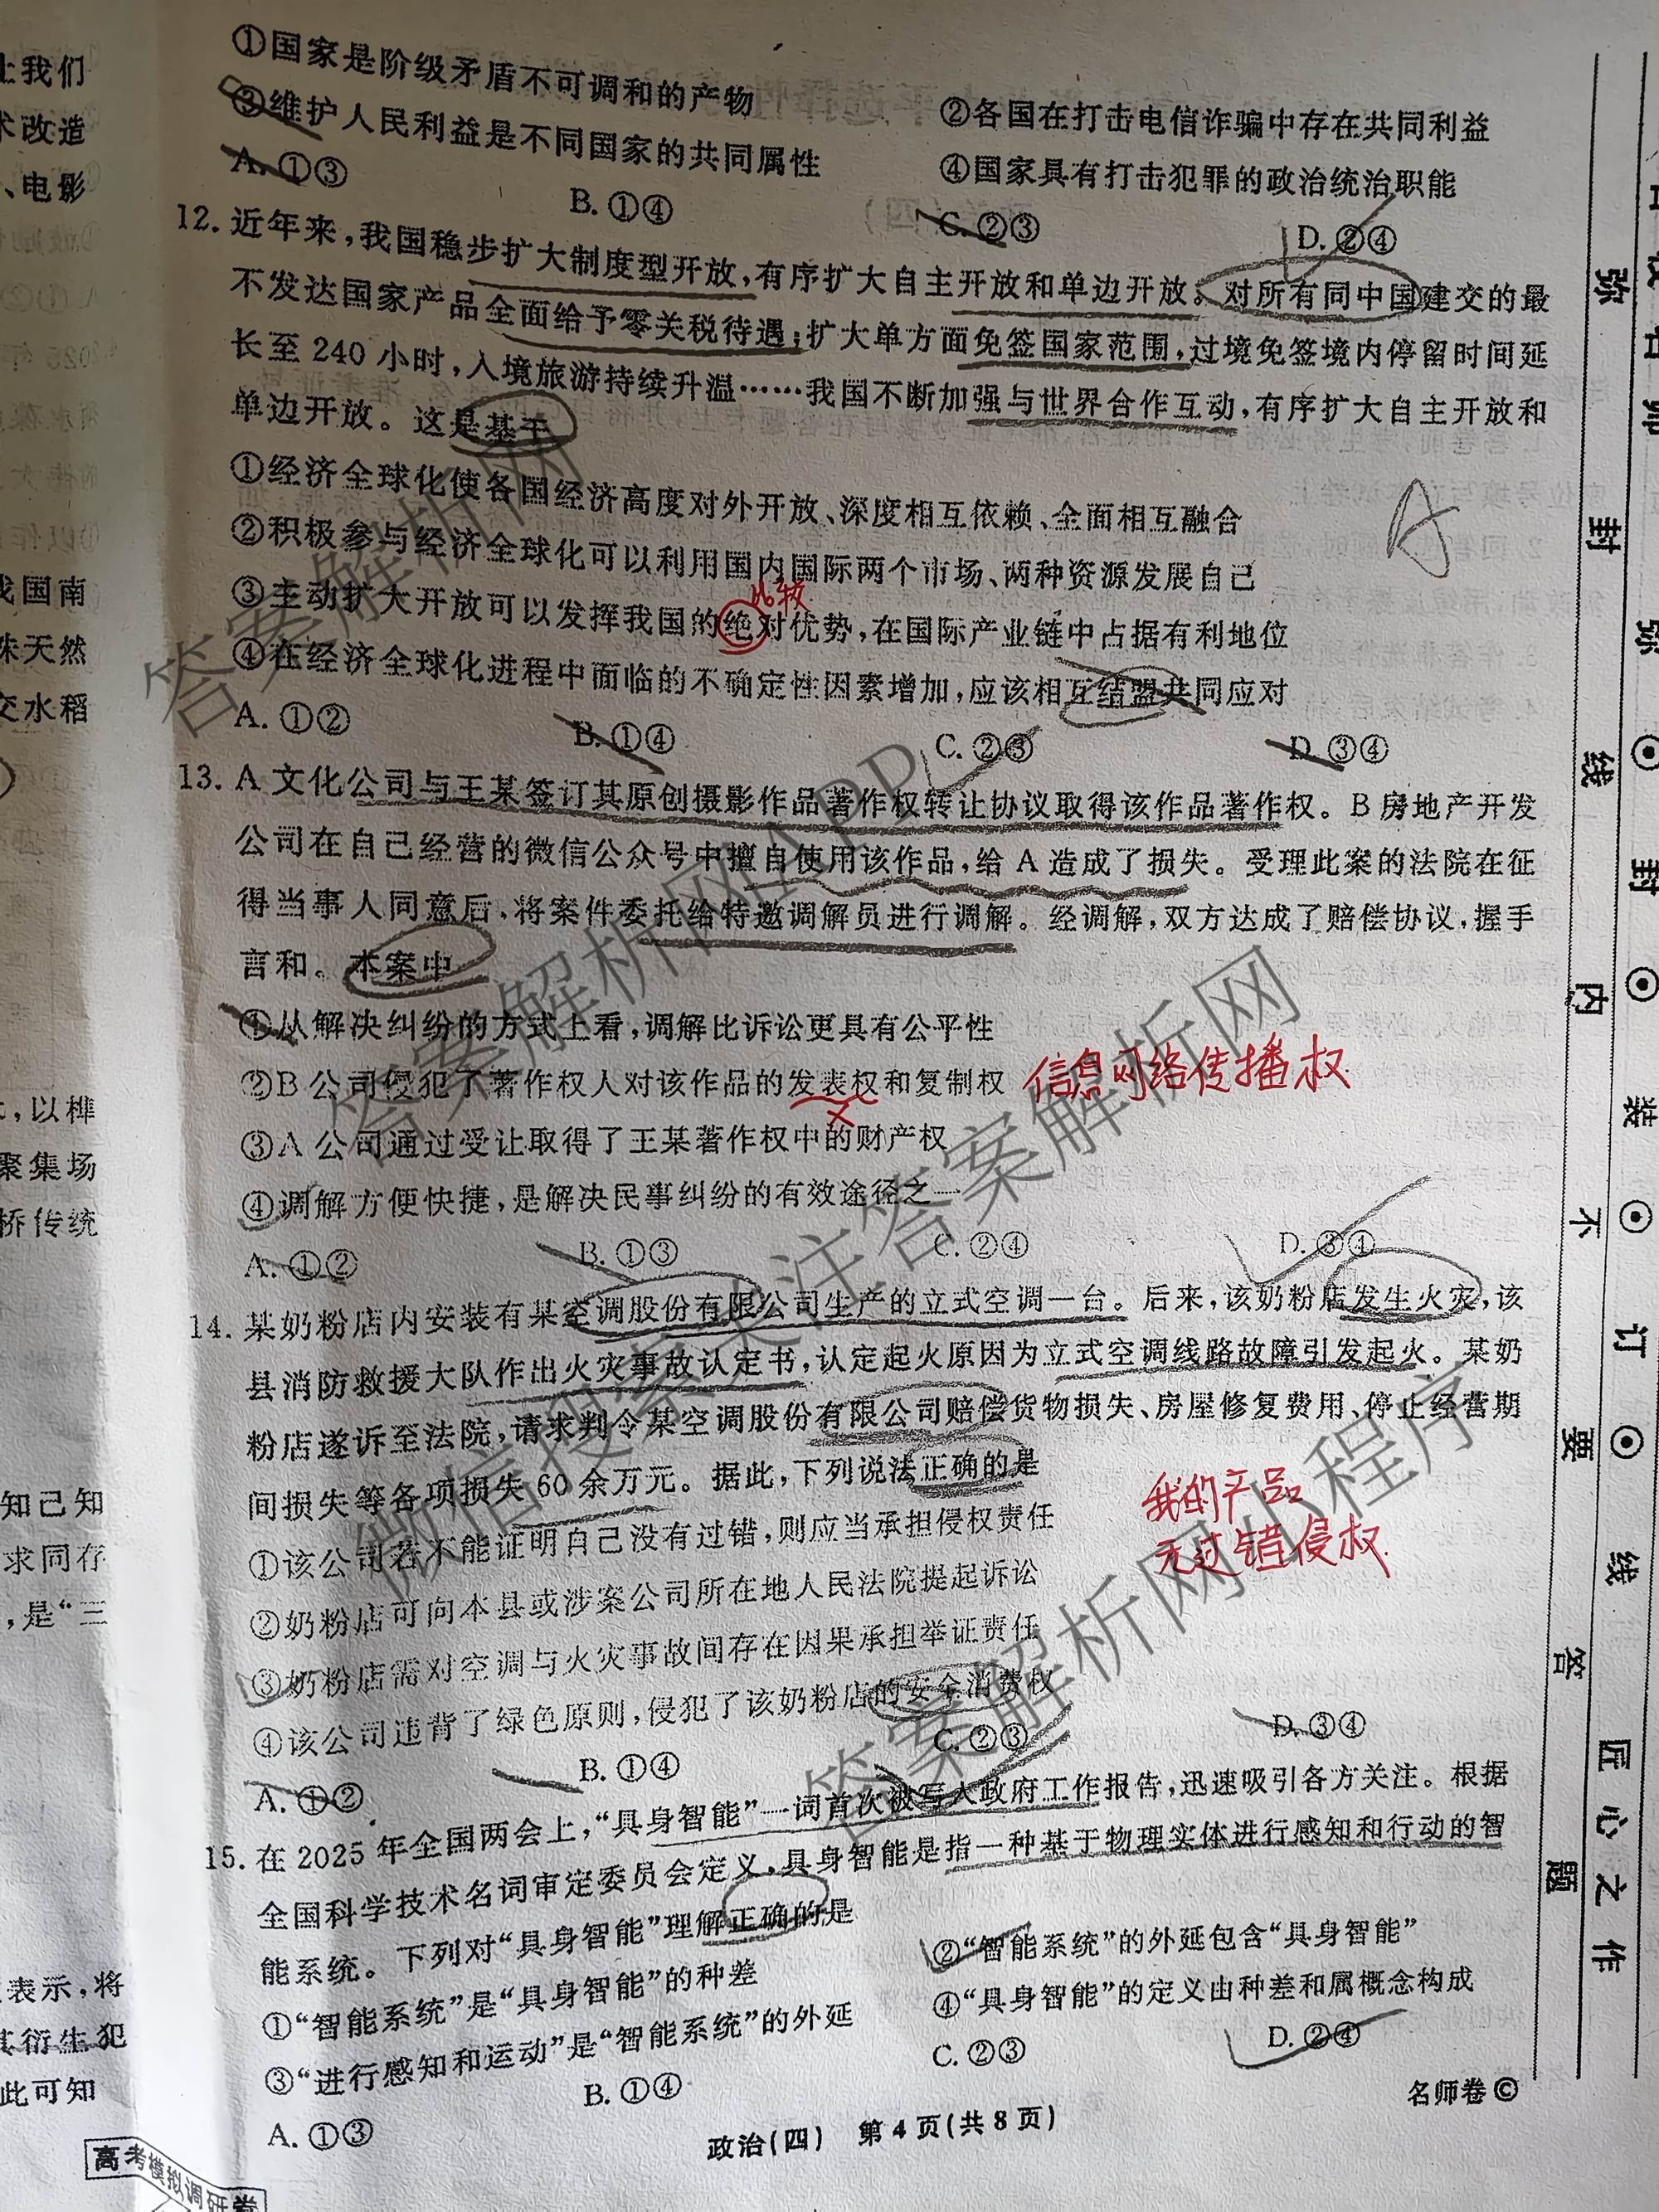 ①国家是阶级矛盾不可调和的产物
②各国在打击电信诈骗中存在共同利益
③维护人民利益是不同国家的共同属性
④国家具有打击犯罪的政治统治职能
A. ①③
B. ①④
C. ②③
D. ②④
12. 近年来，我国稳步扩大制度型开放，有序扩大自主开放和单边开放。对所有同中国建交的最
不发达国家产品全面给予零关税待遇；扩大单方面免签国家范围，过境免签境内停留时间延
长至 240 小时，入境旅游持续升温……我国不断加强与世界合作互动，有序扩大自主开放和
单边开放。这是基于
①经济全球化使各国经济高度对外开放、深度相互依赖、全面相互融合
②积极参与经济全球化可以利用国内国际两个市场、两种资源发展自己
比较
③主动扩大开放可以发挥我国的绝对优势，在国际产业链中占据有利地位
④在经济全球化进程中面临的不确定性因素增加，应该相互结盟共同应对
A
A. ①②
B. ①④
C. ②③
D. ③④
13. A 文化公司与王某签订其原创摄影作品著作权转让协议取得该作品著作权。B 房地产开发
公司在自己经营的微信公众号中擅自使用该作品，给 A 造成了损失。受理此案的法院在征
得当事人同意后，将案件委托给特邀调解员进行调解。经调解，双方达成了赔偿协议，握手
言和。本案中
①从解决纠纷的方式上看，调解比诉讼更具有公平性
②B 公司侵犯了著作权人对该作品的发表权和复制权
信息网络传播权
③A 公司通过受让取得了王某著作权中的财产权
④调解方便快捷，是解决民事纠纷的有效途径之一
A. ①②
B. ①③
C. ②④
D. ③④
14. 某奶粉店内安装有某空调股份有限公司生产的立式空调一台。后来，该奶粉店发生火灾，该
县消防救援大队作出火灾事故认定书，认定起火原因为立式空调线路故障引发起火。某奶
粉店遂诉至法院，请求判令某空调股份有限公司赔偿货物损失、房屋修复费用、停止经营期
间损失等各项损失 60 余万元。据此，下列说法正确的是
①该公司若不能证明自己没有过错，则应当承担侵权责任
我的产品
无过错侵权
②奶粉店可向本县或涉案公司所在地人民法院提起诉讼
③奶粉店需对空调与火灾事故间存在因果承担举证责任
④该公司违背了绿色原则，侵犯了该奶粉店的安全消费权
A. ①②
B. ①④
C. ②③
D. ③④
15. 在 2025 年全国两会上，“具身智能”一词首次被写入政府工作报告，迅速吸引各方关注。根据
全国科学技术名词审定委员会定义，具身智能是指一种基于物理实体进行感知和行动的智
能系统。下列对“具身智能”理解正确的是
①“智能系统”是“具身智能”的种差
②“智能系统”的外延包含“具身智能”
③“进行感知和运动”是“智能系统”的外延
④“具身智能”的定义由种差和属概念构成
A. ①③
B. ①④
C. ②③
D. ②④
名师卷©
政治(四) 第 4 页(共 8 页)
高考模拟调研卷
上我们
术改造
、电影
我国南
株天然
交水稻
，以榫
聚集场
桥传统
知己知
求同存
，是“三
表示，将
其衍生犯
此可知
弥 封 线 内 不 要 答 题
弥 封 装 订 线 匠心之作
答案解析网
答案解析网APP
答案解析网
微信搜索关注答案解析网
答案解析网小程序